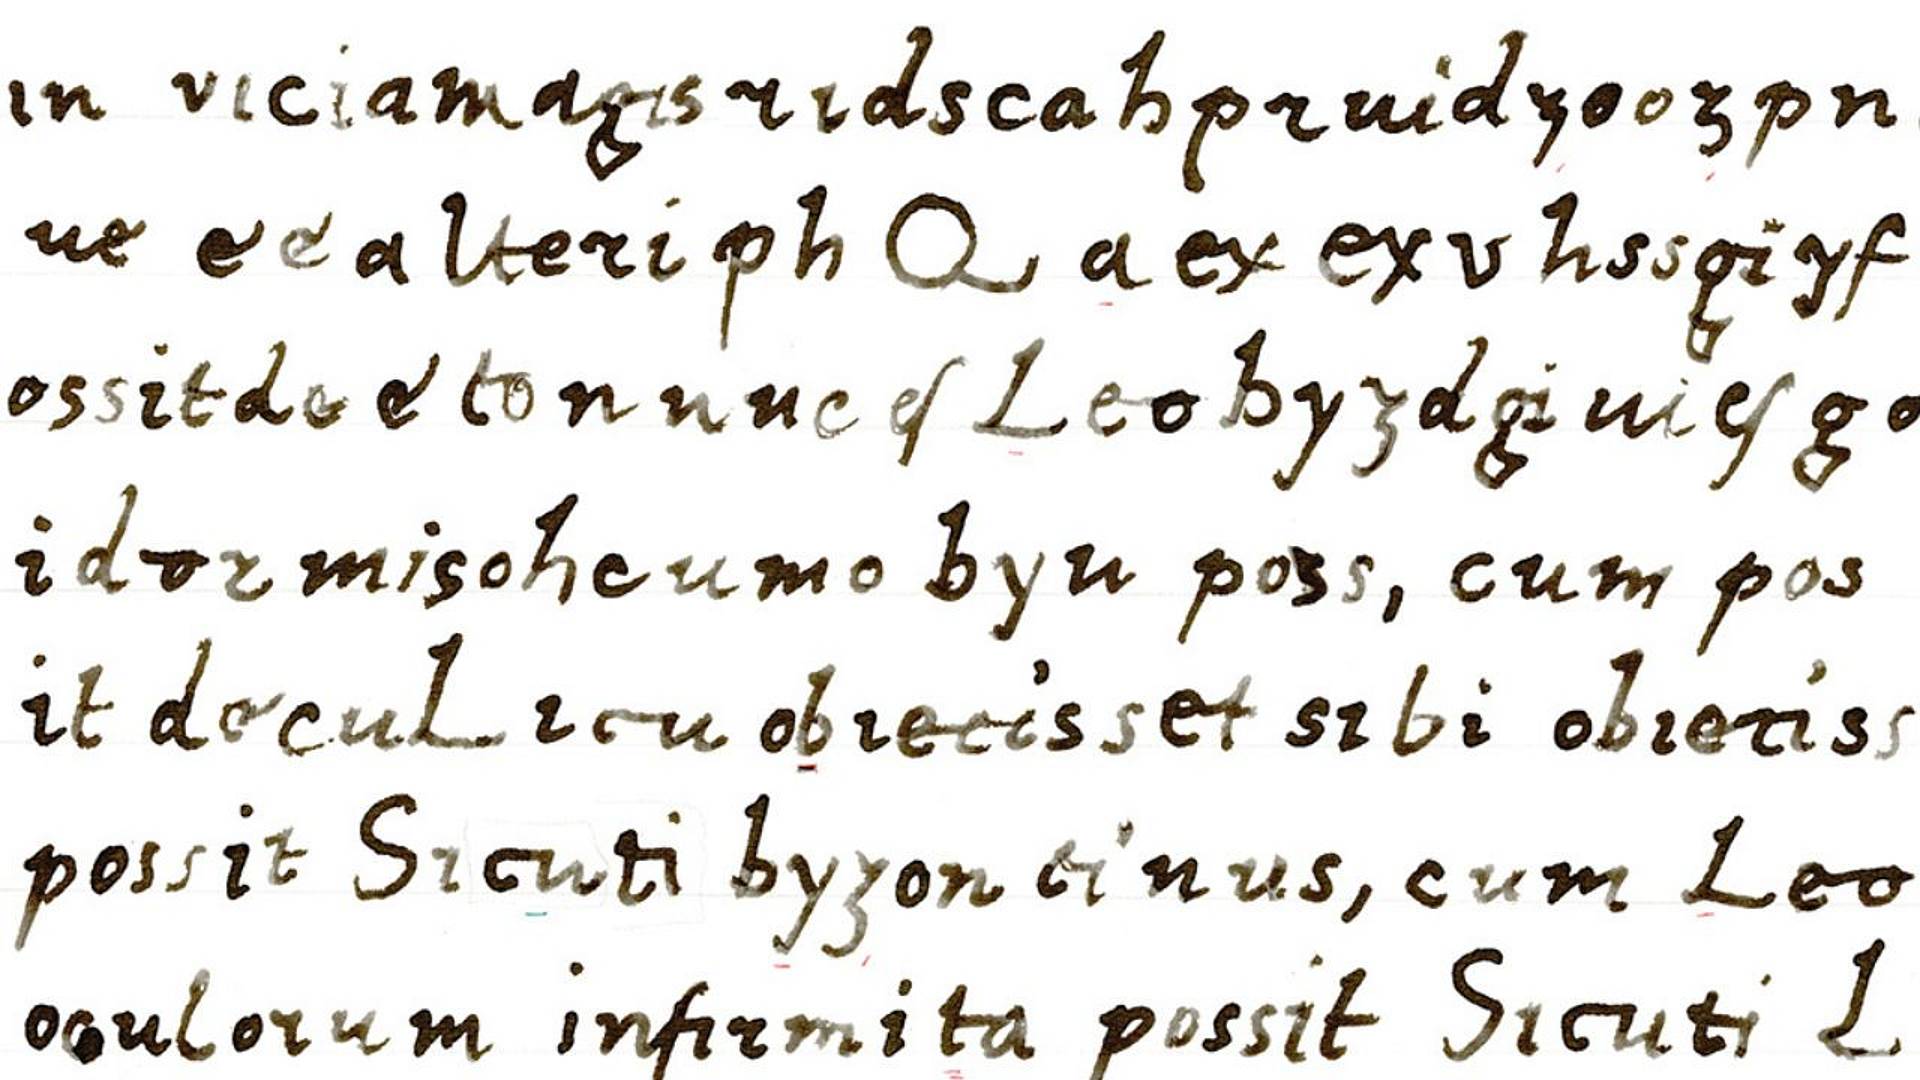 in viciamagisridscahpruidyoozpn
ue e e alteri ph Q a ex exv hssgiyf
ossitde e tonnunc ef Leobyzdgiuief go
idormisohcumo byu poss, cum pos
it decuL icu obietisset sibi obietiss
possit Sicuti byzontinus, cum Leo
oculorum infirmita possit Sicuti L